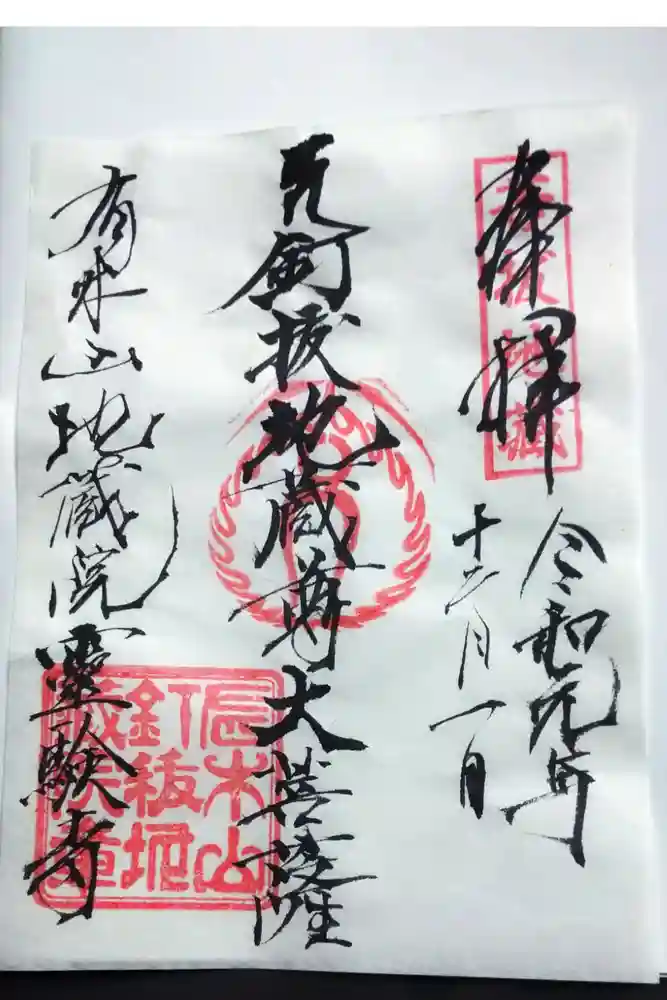 奉拝
令和元年
十二月一日
釘抜地蔵尊大菩薩
有木山地蔵院靈験寺
地蔵
木山
釘抜地
蔵